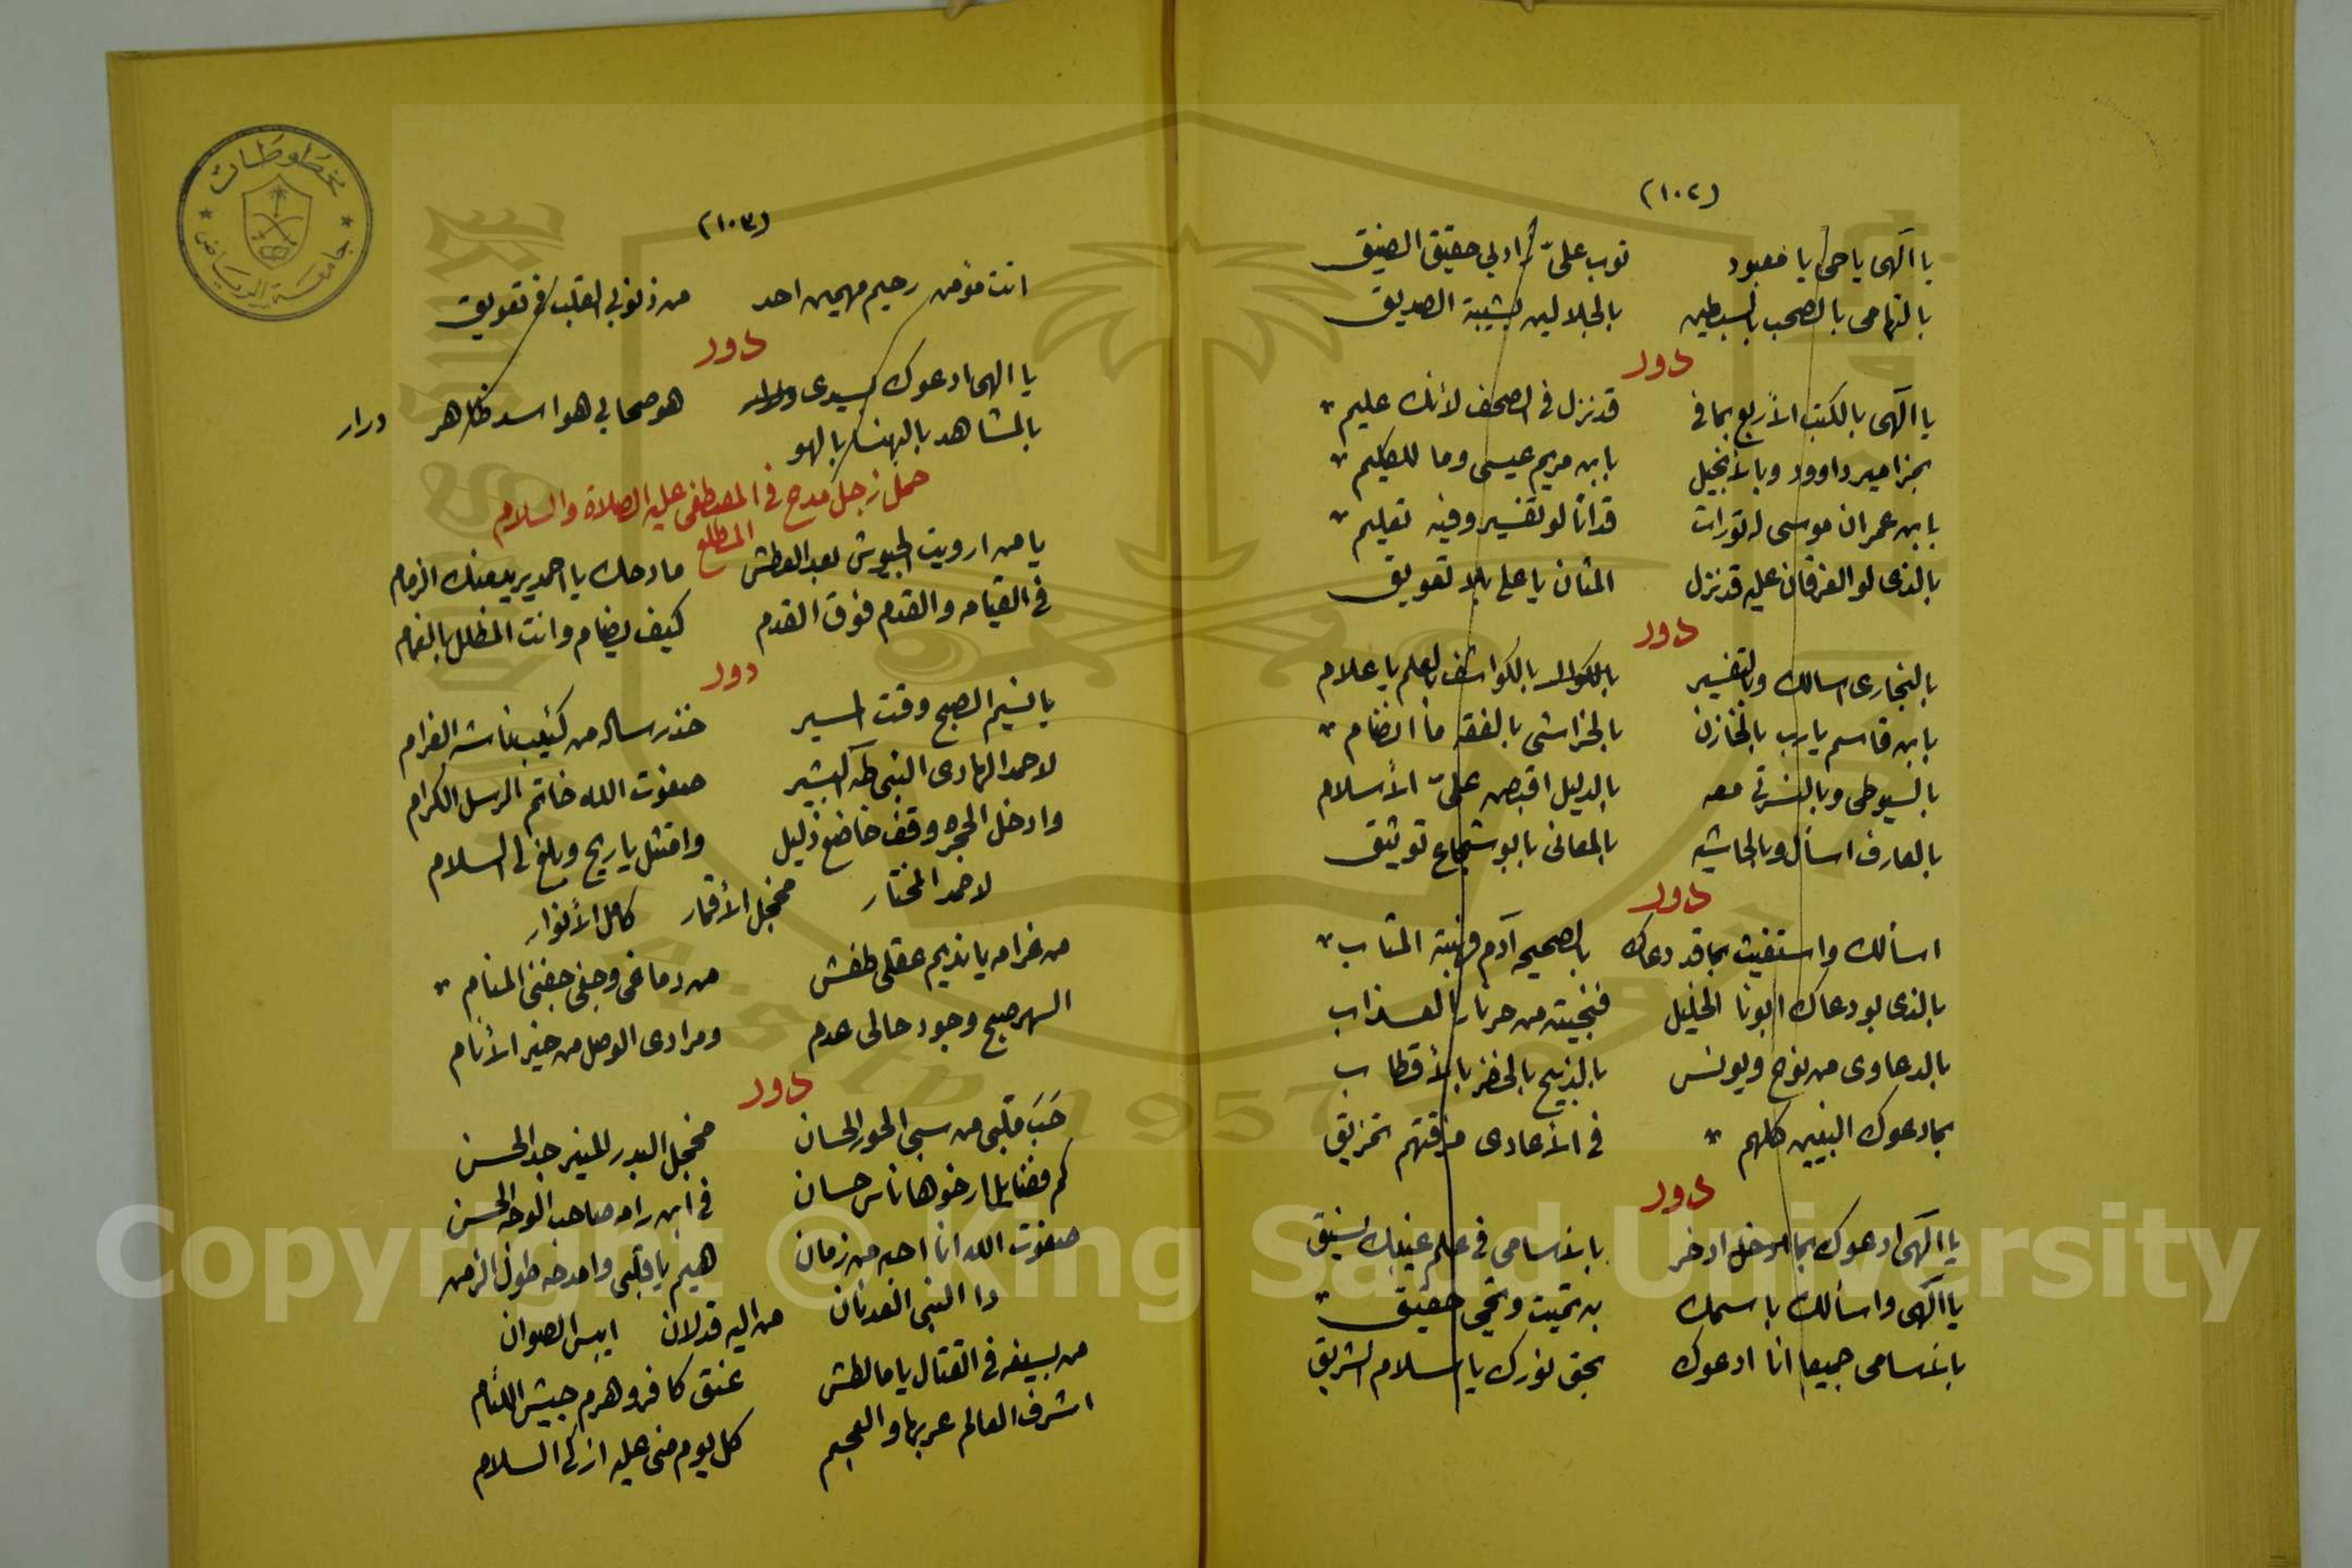 (١٠٢)
يا الهى يا حى يا معبود توب علىّ وادبى حقيق الضيق
بالتهامى بالصحب بالسبطين بالجلالين بشيبة الصديق
دور
يا الهى بالكتب الأربع بما فى قد نزل فى الصحف لأنك عليم
بمزامير داوود وبالأنجيل بابن مريم عيسى وما للكليم
بابن عمران موسى له تورات قد اتا لو تفسير وفيه تعليم
بالذى لو الفرقان عليه قد نزل المثان يا على بلا تعويق
دور
بالبخارى اسالك وبالتفسير بالكواشف بالعلم يا علام
بابن قاسم يارب بالخازن بالخراشى بالفقه ما انضام
بالسيوطى وبالنسرتى معه بالدليل اقبض علىّ الأسلام
بالعارف اسأل وبالحاشيه بالمعانى بابو شجاع توثيق
دور
اسألك واستغيث بما قد دعاك بالصحيح آدم فهبته المتاب
بالذى بو دعاك ابونا الخليل فنجيته من حر نار العذاب
بالدعاوى من نوح ويونس بالذبيح بالخضر بالأقطاب
بما دعوك النبيين كلهم فى الأعادى مزقتهم تمزيق
دور
يا الهى ادعوك بما ادخر باسامى فى علم غيبك سبق
يا الهى واسألك باسمك به تميت وتحي حقيق
باسامى جميعا انا ادعوك بحق نورك يا سلام الشريق
(١٠٣)
انت مؤمن رحيم مهيمن احد من ذنوبى القلب فى تعويق
دور
يا الهى ادعوك سيدى هو صحابى هو اسد ظاهر ودرار
بالمشاهد بالبهنسا بالهو
حمل زجل مدح فى المصطفى عليه الصلاة والسلام
المطلع
يا من ارويت الجيوش بعد العطش مادحك يا احمد يريد منك الزمام
فى القيامه والقدم فوق القدم كيف يضام وانت المظلل بالغمام
دور
يا نسيم الصبح وقت المسير خذ رساله من كئيب ناشه الغرام
لاحمد الهادى النبى طه البشير صفوت الله خاتم الرسل الكرام
وادخل الحجره وقف خاضع ذليل وامتثل ياريح وبلغ لى السلام
لاحمد المختار مخجل الأقمار كامل الأنوار
من غرامه يا نديم عقلى طفش من دماغى وجفى جفنى المنام
السهر صبح وجود حالى عدم ومرادى الوصل من خير الأنام
دور
حَبَ قلبى من سبى الحور الحسان مخجل البدر المنير جد الحسن
كم فضايل ارخوها ناس حسان فى ابن رامه صاحب الوجه الحسن
صفوت الله انا احبه من زمان هيم يا قلبى وامدحه طول الزمن
دا النبى العدنان من اليه قد لان ايبس الصوان
من بسيفه فى القتال ياما لطش عنق كافر وهزم جيش اللئام
اشرف العالم عربها والعجم كل يوم منى عليه ازكى السلام
مخطوطات
جامعة الرياض
Copyright © King Saud University
1957